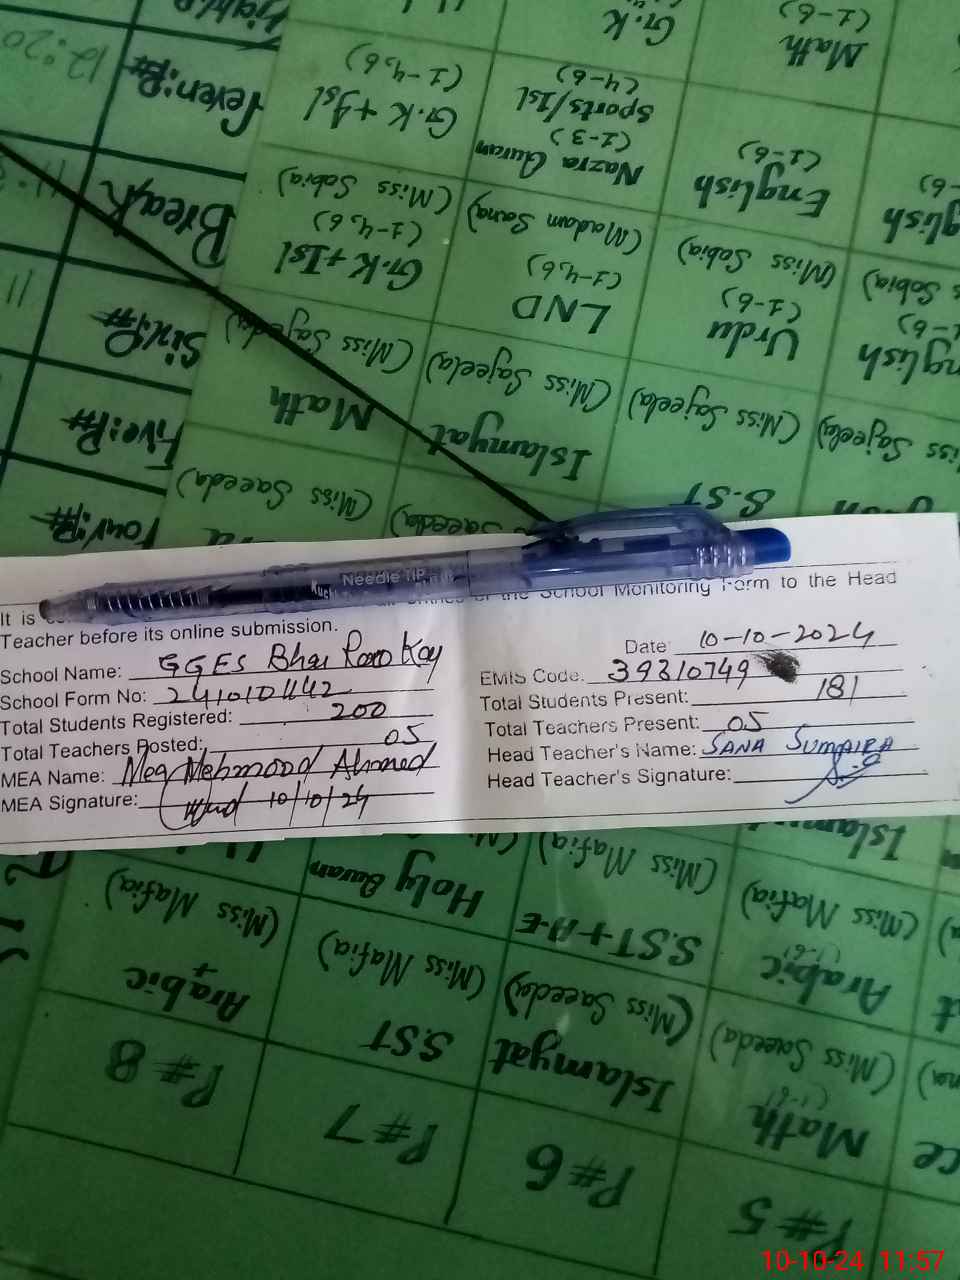 It is
School Monitoring Form to the Head
Teacher before its online submission.
Date: 10-10-2024
School Name: GGES Bhai
EMIS Code. 39310749
School Form No:
Total Students Present: 181
Total Students Registered: 200
Total Teachers Present: 05
Total Teachers Posted: 05
Head Teacher's Name: SANA SUMAIRA
MEA Name: Mehmood Ahmed
Head Teacher's Signature:
MEA Signature: 10/10/24
Needle TIP
P#5
P#6
P#7
P#8
Math
(1-6)
(Miss Saeeda)
Islamyat
(Miss Saeeda)
S.ST
(Miss Mafia)
Arabic
(Miss Mafia)
Arabic
(1-6)
(Miss Mafia)
S.ST+A-E
(Miss Mafia)
Holy Quran
Four:P#
(Miss Saeeda)
S.ST
(Miss Sajeela)
Islamyat
(Miss Sajeela)
Math
(Miss Sajeela)
Five:P#
Six:P#
Urdu
(1-6)
(Miss Sobia)
LND
(1-4,6)
(Madam Sana)
G.K+Isl
(1-4,6)
(Miss Sobia)
Break
English
(1-6)
Nazra Quran
(1-3)
Sports/Isl
(4-6)
G.K+Isl
(1-4,6)
Seven:P#
12:20
Math
(1-6)
G.K
10-10-24 11:57